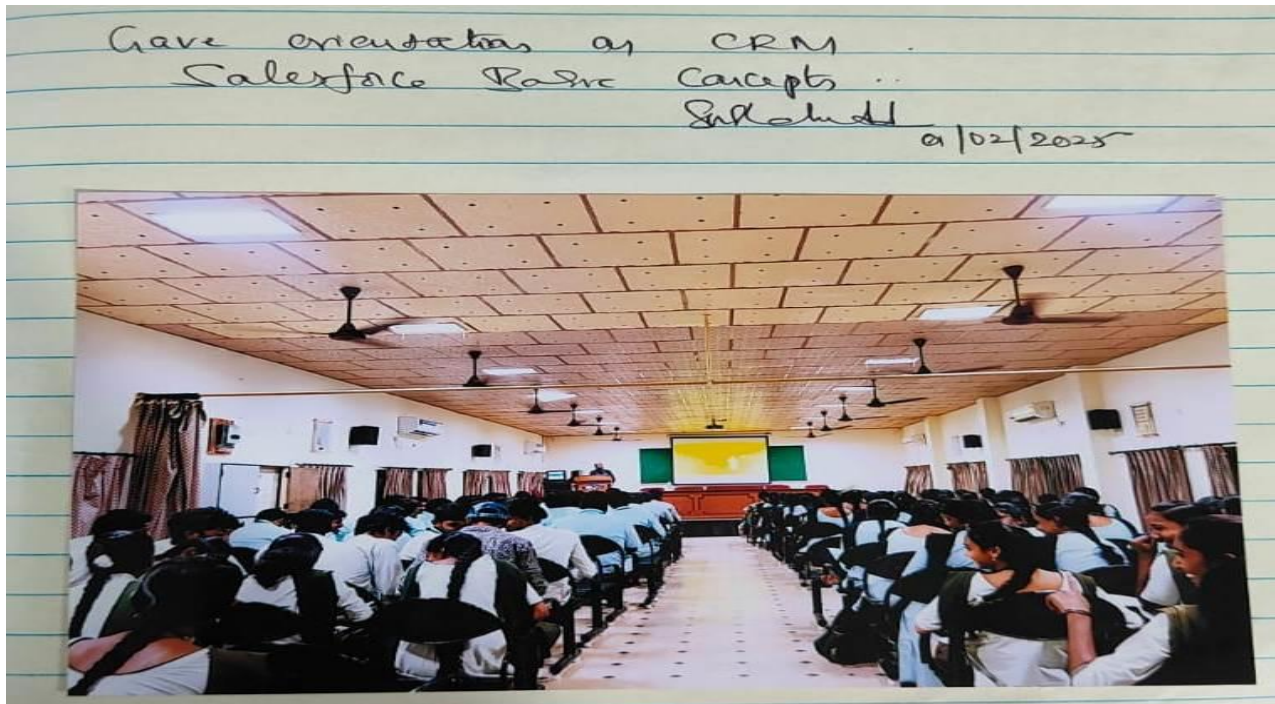 Gave orientation on CRM.
Salesforce Basic Concepts..
/02/2025